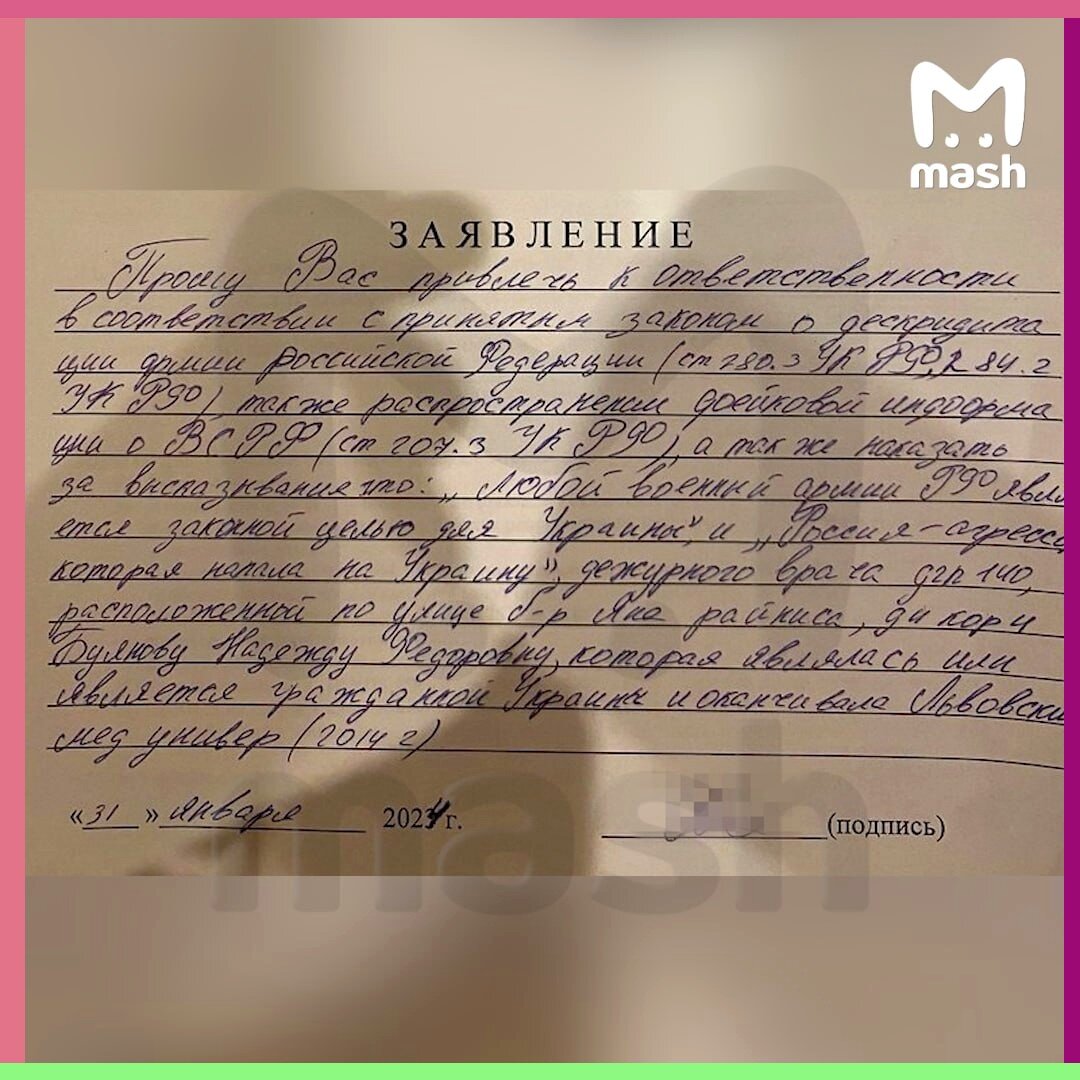 mash
ЗАЯВЛЕНИЕ
Прошу Вас привлечь к ответственности
в соответствии с принятым законом о дескридита
ции армии Российской Федерации (ст 280.3 УК РФ, 284.2
УК РФ), также распространении фейковой информа
ции о ВС РФ (ст 207.3 УК РФ), а так же наказать
за высказывание что: „Любой военный армии РФ явля
ется законной целью для Украины", и „Россия-агресс
которая напала на Украину", дежурного врача дгп 140,
расположенной по улице б-р Яна райниса,
Буянову Надежду Федоровну, которая являлась или
является гражданкой Украины и оканчивала Львовски
мед универ (2014 г)
«31» января 2024 г.
(подпись)
mash